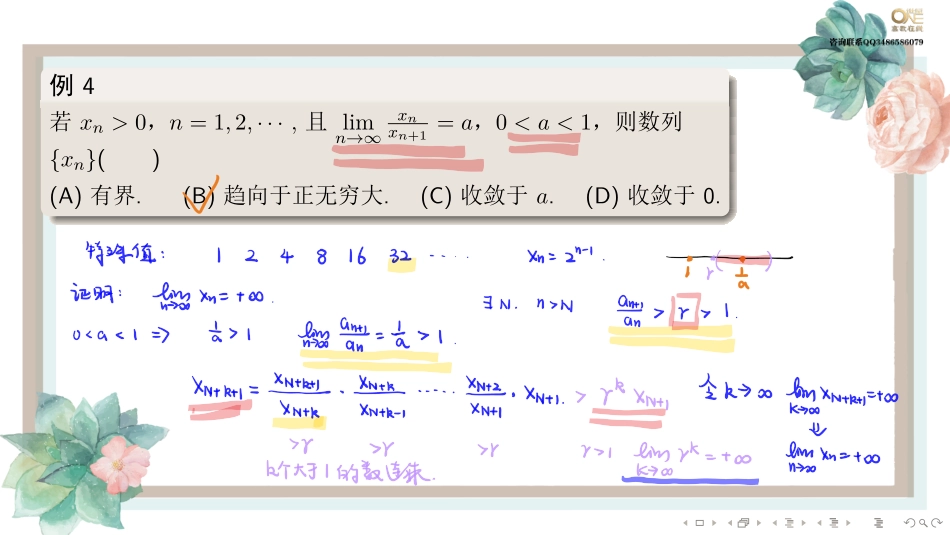 ONE
鑫数在线
咨询联系QQ3486586079
例 4
若 xₙ > 0，n = 1, 2, ⋯ , 且 lim_{n→∞} xₙ/xₙ₊₁ = a，0 < a < 1，则数列
{xₙ}(　　)
(A) 有界.　(B) 趋向于正无穷大.　(C) 收敛于 a.　(D) 收敛于 0.
特殊值: 1 2 4 8 16 32 ⋯⋯ xₙ = 2ⁿ⁻¹.
1 r ( 1/a )
证明: lim_{n→∞} xₙ = +∞. ∃N. n>N aₙ₊₁/aₙ > r > 1.
0<a<1 ⇒ 1/a > 1 lim_{n→∞} aₙ₊₁/aₙ = 1/a > 1.
x_{N+k+1} = x_{N+k+1}/x_{N+k} · x_{N+k}/x_{N+k-1} ⋯⋯ x_{N+2}/x_{N+1} · x_{N+1}. > r^k x_{N+1} 令k→∞ lim_{k→∞} x_{N+k+1} = +∞
⇓
>r >r >r r>1 lim_{k→∞} r^k = +∞ lim_{n→∞} xₙ = +∞
k个大于1的数连乘.